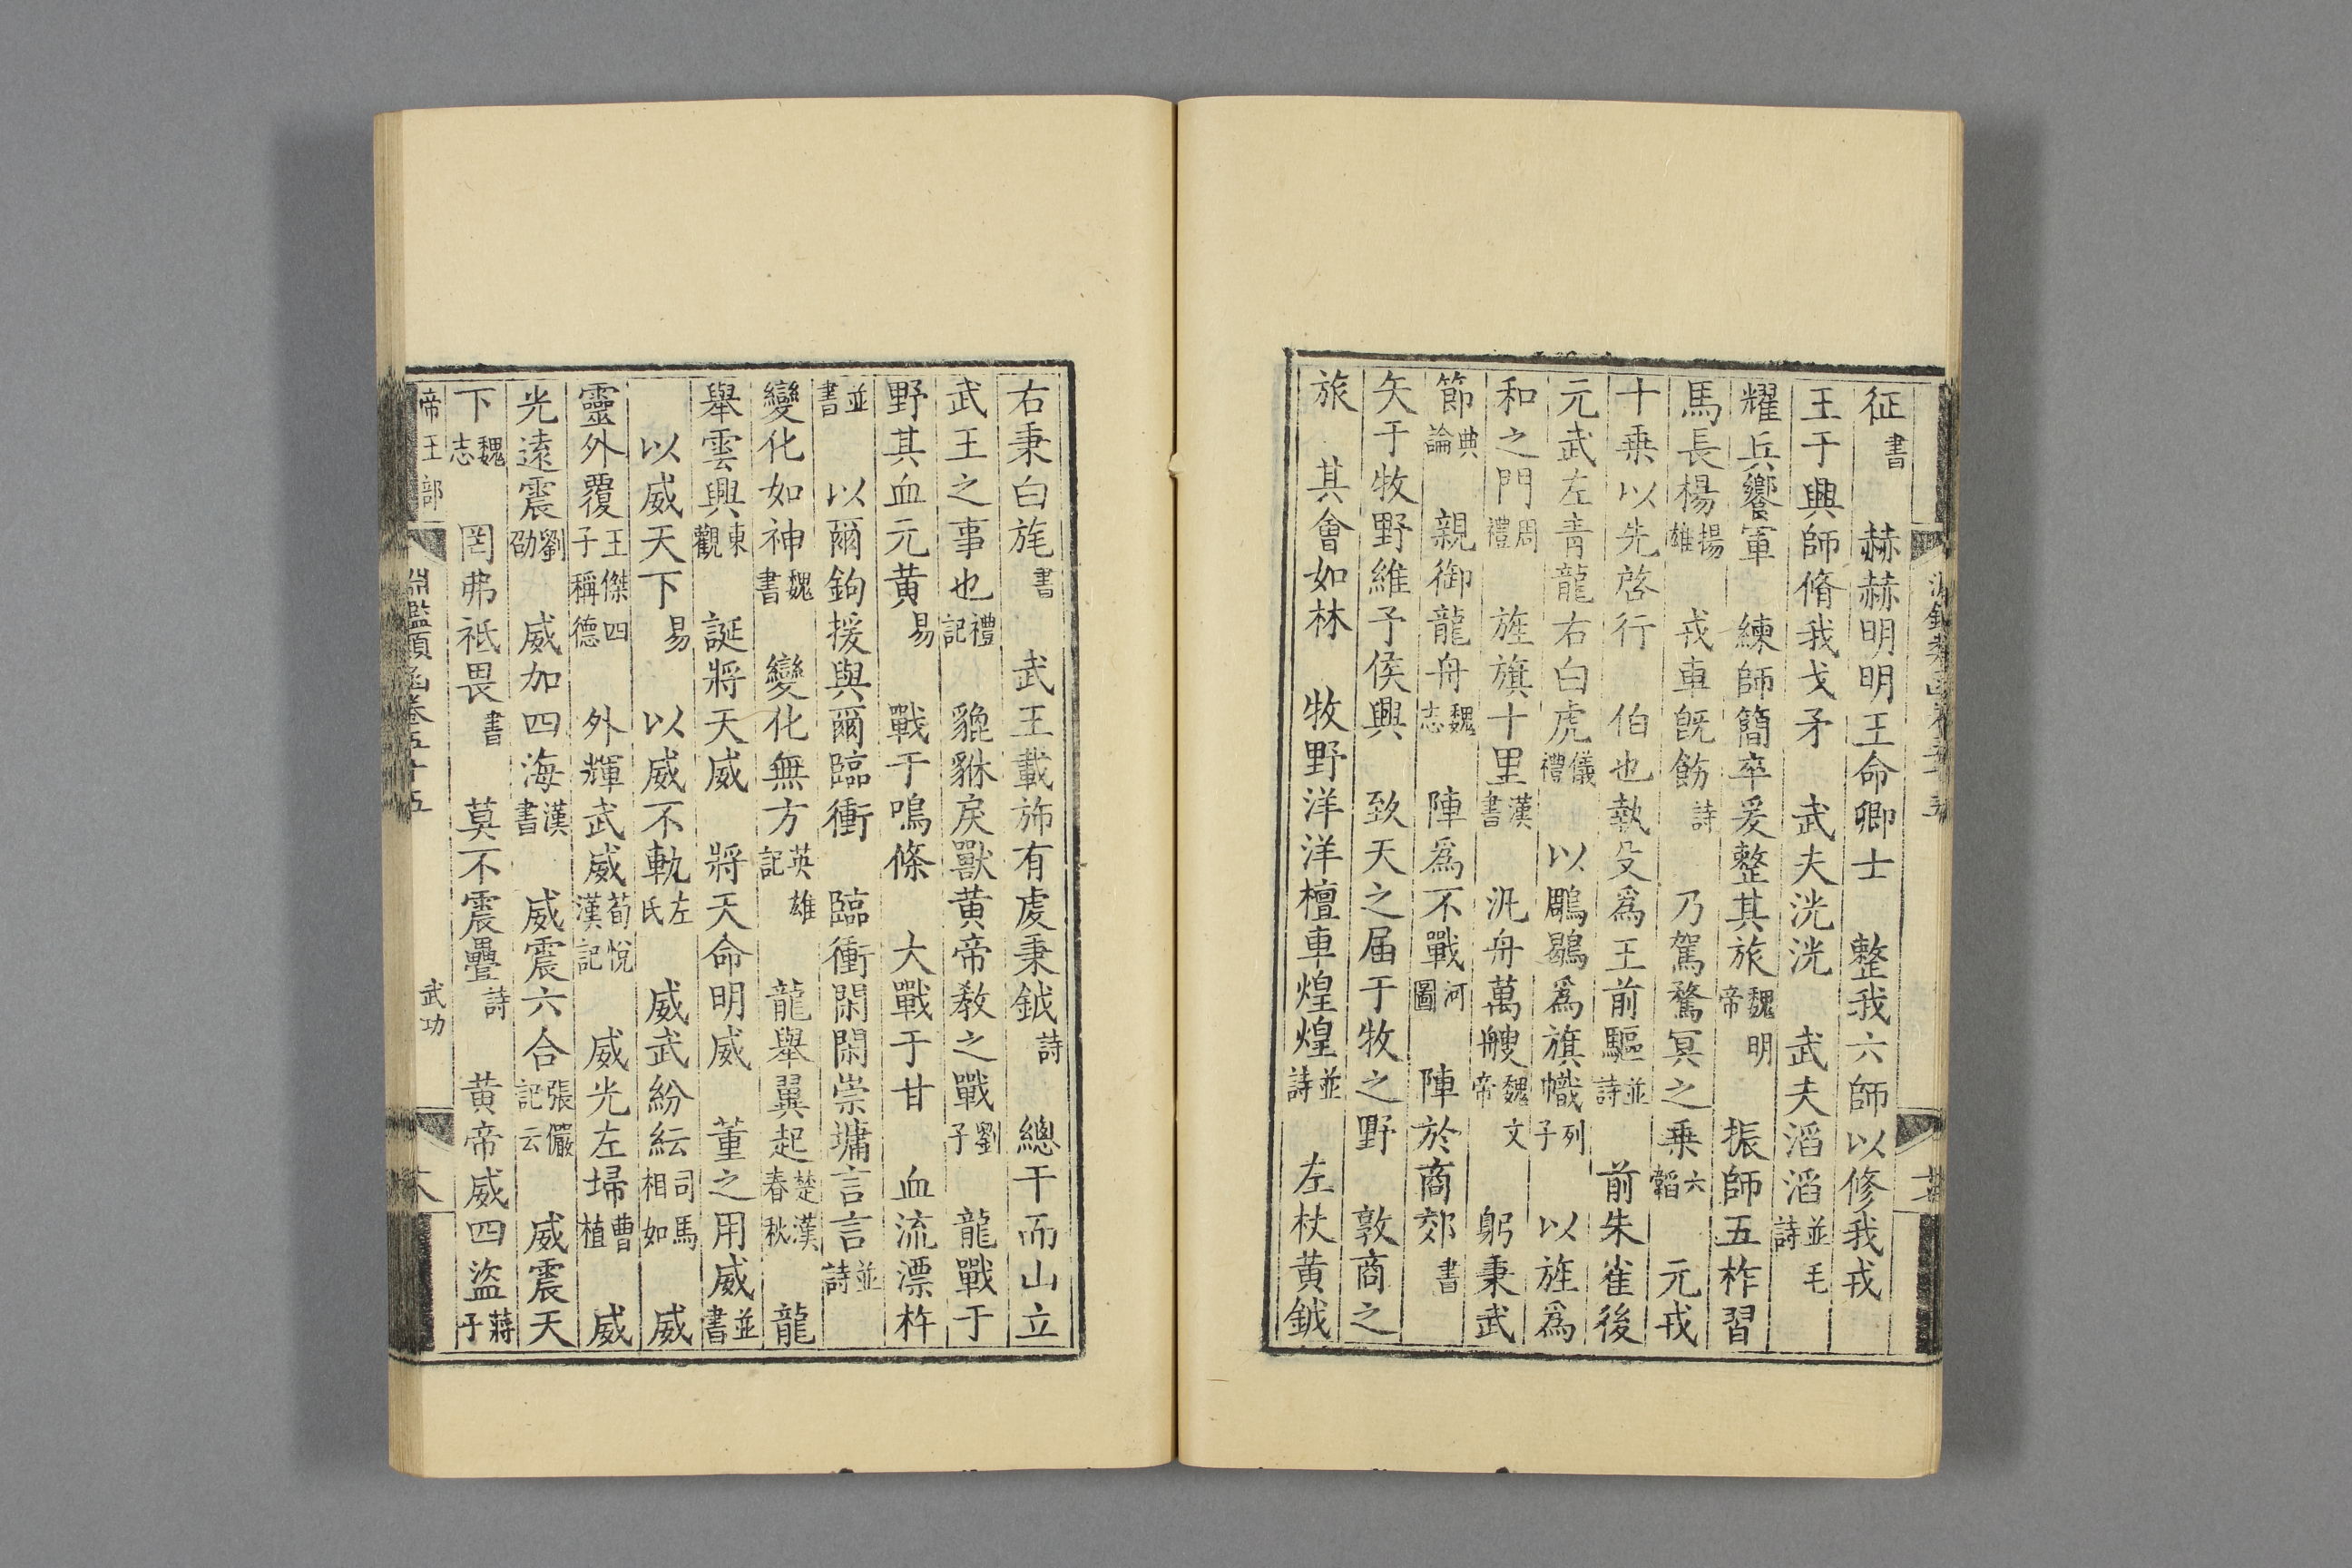 征書　赫赫明明王命卿士　整我六師以修我戎
王于興師脩我戈矛　武夫洸洸　武夫滔滔並毛詩
耀兵饗軍　練師簡卒爰整其旅魏明帝　振師五柞習
馬長楊揚雄　戎車旣飭詩　乃駕騖冥之乗六韜　元戎
十乗以先啓行　伯也執殳爲王前驅並詩　前朱雀後
元武左青龍右白虎儀禮　以鵰鶡爲旗幟列子　以旌爲
和之門周禮　旌旗十里漢書　汎舟萬艘魏文帝　躬秉武
節典論　親御龍舟魏志　陣爲不戰河圖　陣於商郊書
矢于牧野維予侯興　致天之届于牧之野　敦商之
旅　其會如林　牧野洋洋檀車煌煌並詩　左杖黄鉞
右秉白旄書　武王載斾有虔秉鉞詩　總干而山立
武王之事也禮記　貔貅戾獸黄帝教之戰劉子　龍戰于
野其血元黄易　戰于鳴條　大戰于甘　血流漂杵
並書　以爾鉤援與爾臨衝　臨衝閑閑崇墉言言並詩
變化如神魏書　變化無方英雄記　龍舉翼起楚漢春秋　龍
舉雲興東觀　誕將天威　將天命明威　董之用威並書
以威天下易　以威不軌左氏　威武紛紜司馬相如　威
靈外覆王傑子稱四德　外輝武威荀悅漢記　威光左埽曹植　威
光遠震劉劭　威加四海漢書　威震六合張儼記云　威震天
下魏志　罔弗祗畏書　莫不震疊詩　黄帝威四盜蔣子
帝王部　淵鑑類函卷五十五　武功